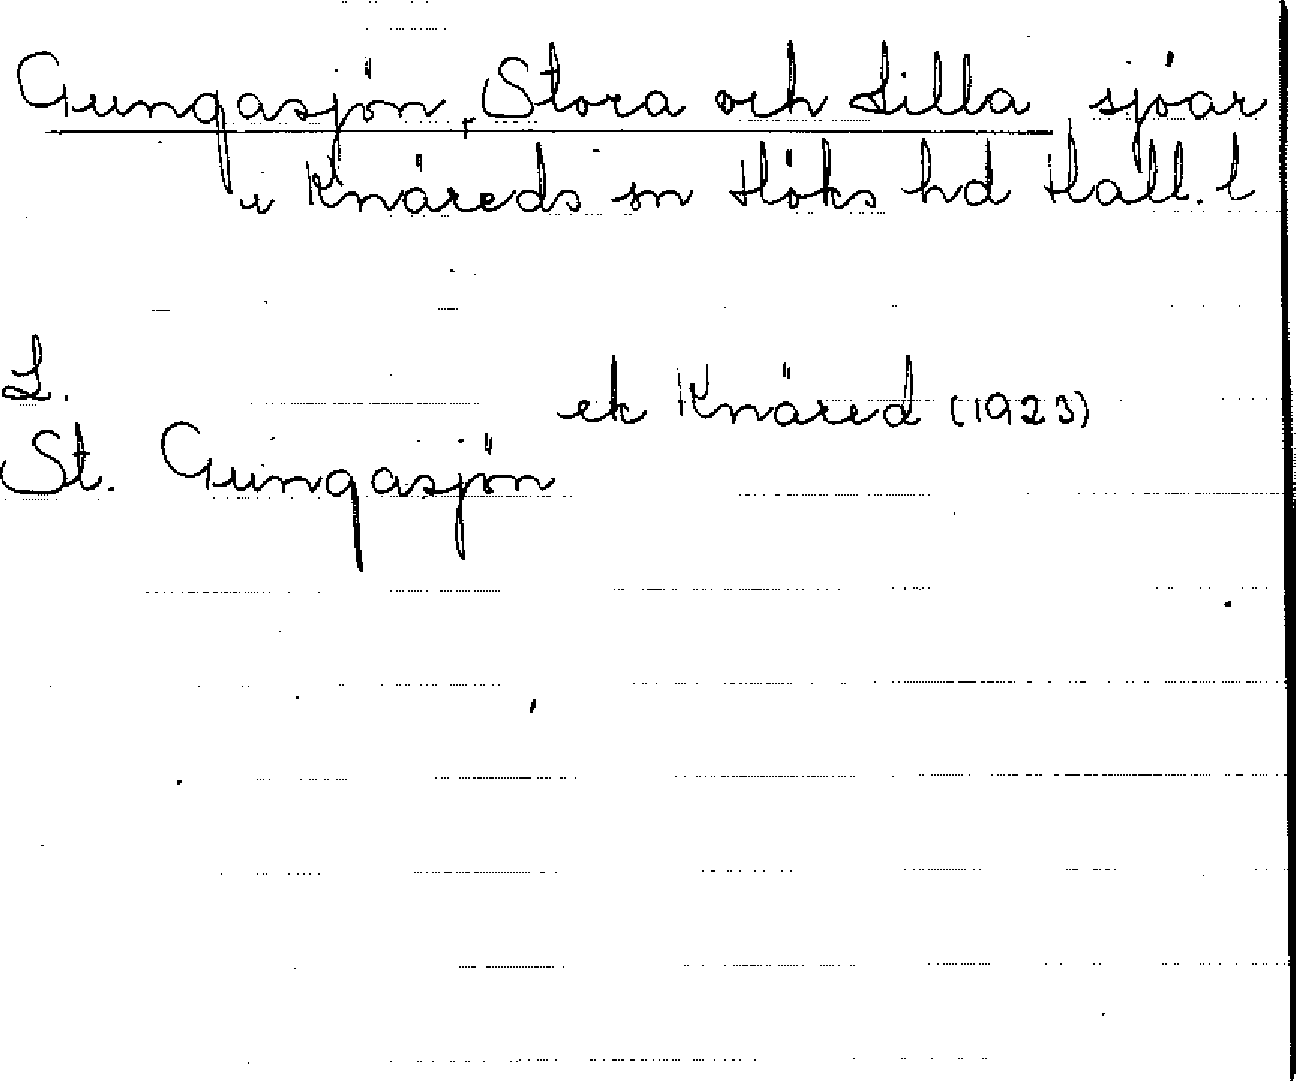 Gungasjön, Stora och Lilla, sjöar
i Knäreds sn Höks hd Hall. l
L.
ek Knäred (1923)
St. Gungasjön